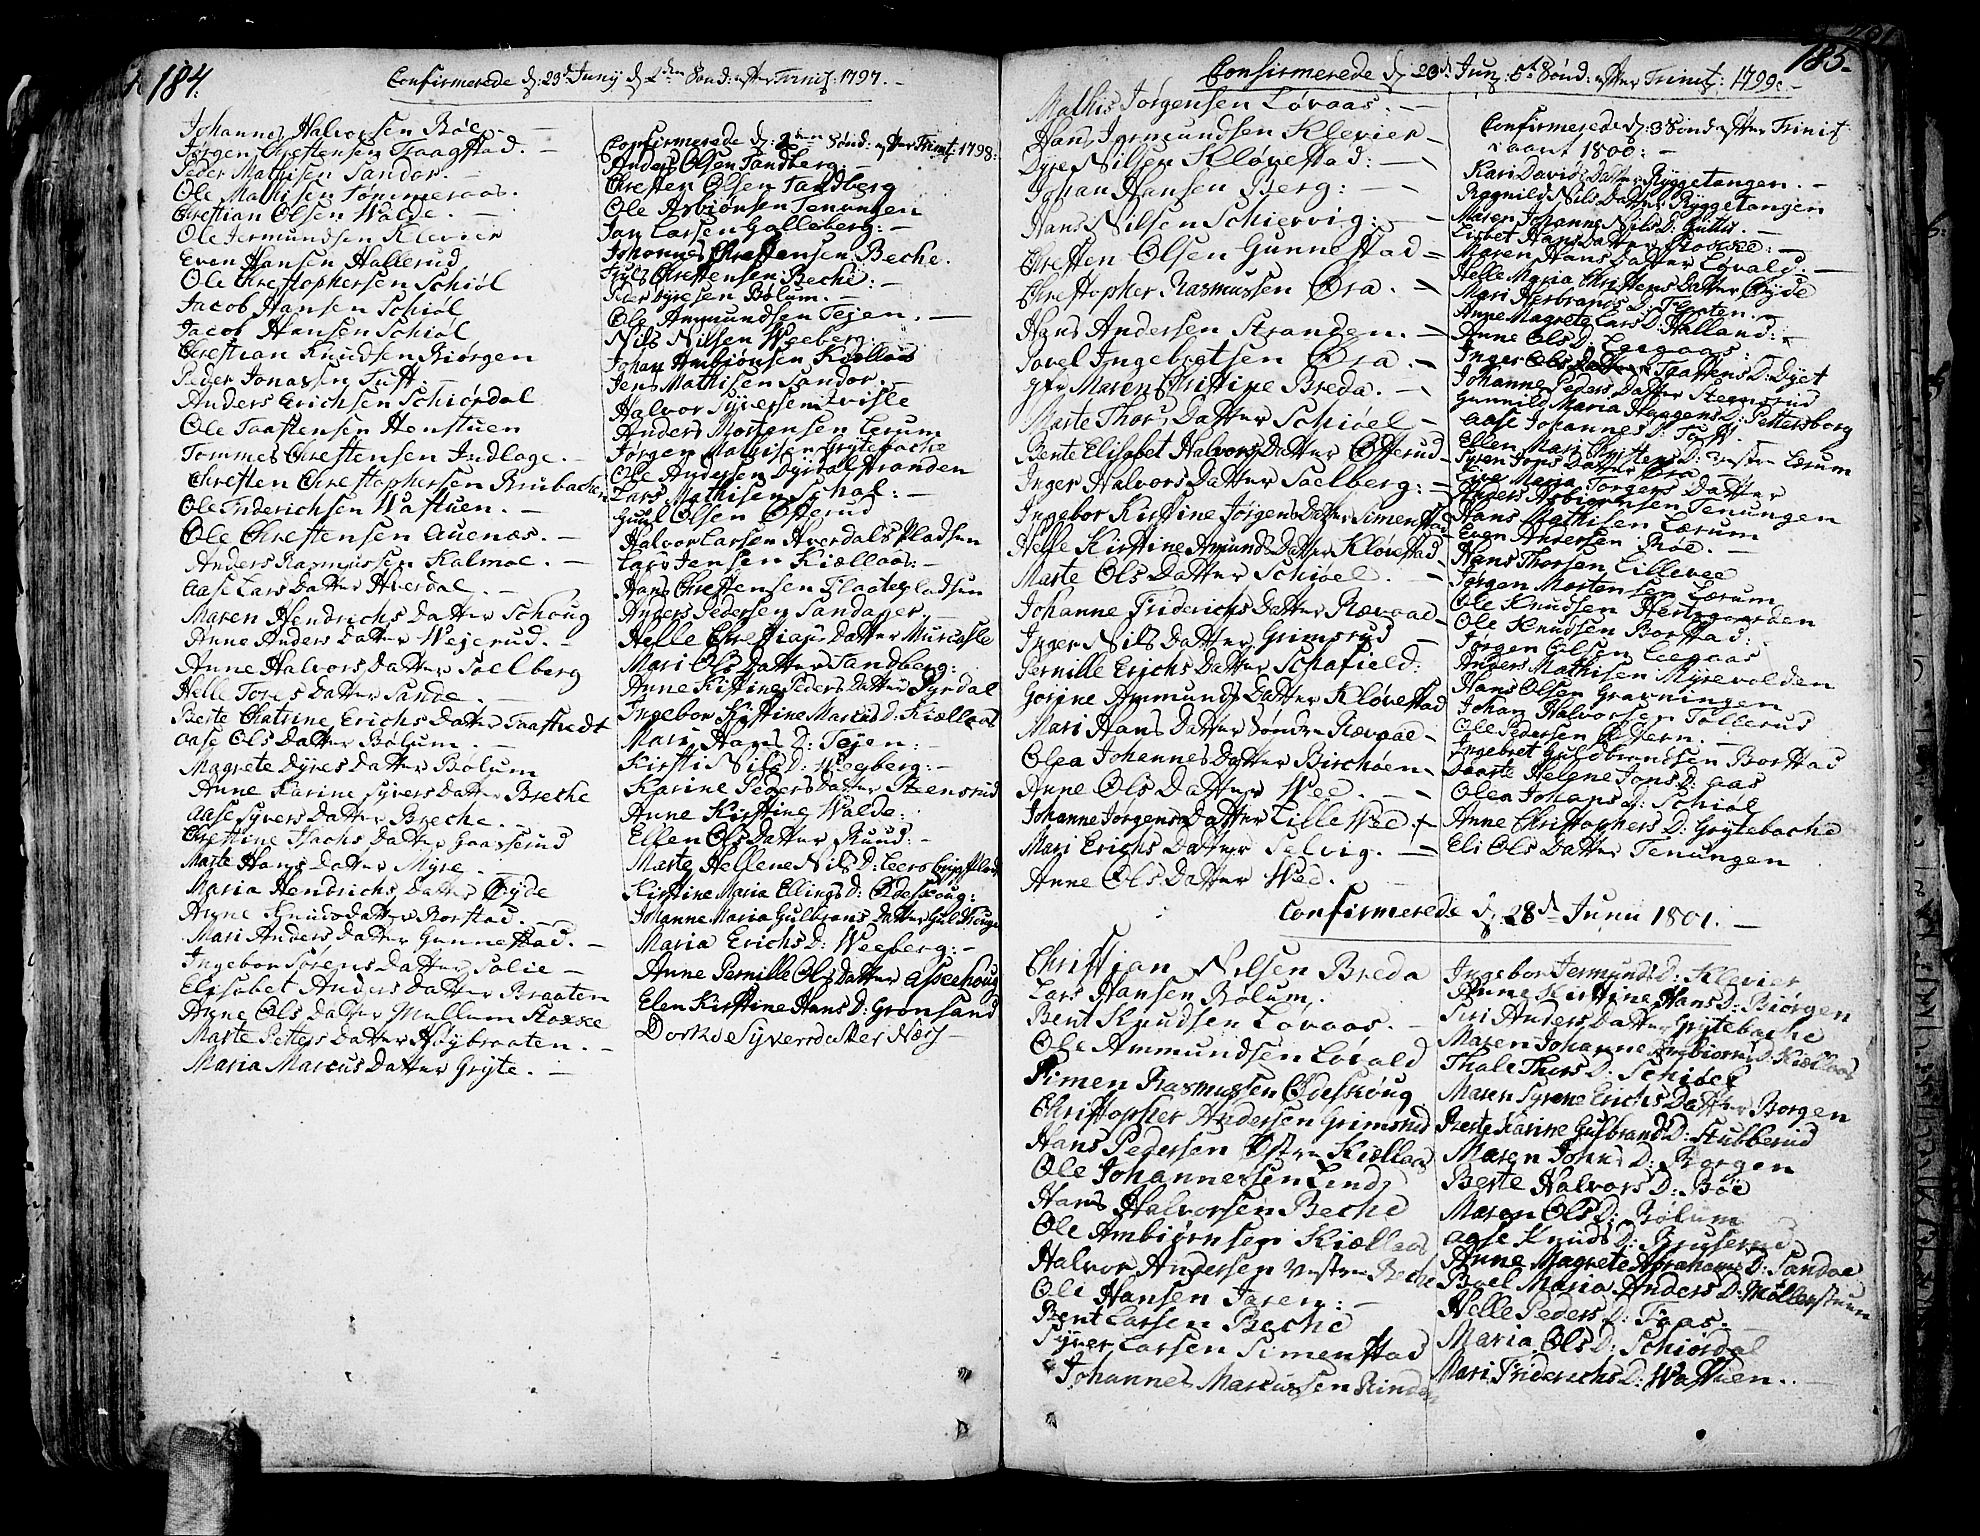 184.
Confirmerede d: 23de Junij d 2den Sønd: efter Trinit: 1797. -
Johannes Halvorsen Bøe. -
Jørgen Chrestensen Traagstad. -
Peder Mathisen Sandor. -
Ole Mathisen Tømmeraas.
Chrestian Olsen Walde. -
Ole Jermundsen Klevier
Even Hansen Hallerud
Ole Chrestophersen Schiöl
Jacob Hansen Schiöl
Jacob Hansen Schiöl
Chrestian Knudsen Biørgen
Peder Jonassen Tuft. -
Anders Erichsen Schiördal
Ole Taaftensen Henstuen
Tommes Chrestensen Indlage. -
Chresten Chrestophersen Brubachen
Ole Friderichsen Wastuen. -
Ole Chrestensen Auenæs. -
Anders Rasmussen Kalmoe. -
Aase Lars Datter Hverdal. -
Maren Hendrichs Datter Schoug
Anne Anders Datter Wejerud. -
Anne Halvors Datter Soelberg
Helle Tores Datter Sande. -
Berte Chatrine Erichs Datter Taaftvedt
Aase Ols Datter Bölum. -
Magrete Dyres Datter Bölum
Anne Karine Syvers Datter Breche
Aase Syvers Datter Breche. -
Chrestine Isachs Datter Gaasserud
Marte Hans Datter Myre.
Maria Hendrichs Datter Øyde
Anne Knudsdatter Borstad. -
Mari Anders Datter Gunnestad. -
Ingebor Sørens Datter Solie -
Elisabet Anders Datter Braaten
Anne Ols Datter Mellum Stokke
Marte Petters Datter Høybraaten. -
Maria Marcus Datter Gryte. -
Confirmerede d: 2den Sönd: efter Trinit: 1798:
Anders Olsen Tandberg: -
Chresten Olsen Tandberg
Ole Asbiönsen Tenungen
Jan Larsen Golleberg: -
Johannes Chrestensen Beche.
Truls Chrestensen Beche: -
Peder Dyresen Bölum. -
Ole Ammundsen Tejen. -
Nils Nilsen Weeberg: -
Johan Ambiönsen Kiællaas
Jens Mathisen Sandor. -
Halvor Syversen Tvisle
Anders Mortensen Lerum
Jørgen Mathisen Grytebache
Ole Andersen Dyrdalstranden
Lars Mathisen Schaf: -
Olsen Ötterud
Halvor Larsen Hverdals Pladsen
Lars Jensen Kiællaas: -
Hans Chrestensen Flaatepladsen
Anders Pedersen Sandager
Helle Chrestians Datter Murtasle
Mari Ols Datter Tandberg:
Anne Kirstine Peders Datter Dyrdal
Ingebor Kirstine Marcus D: Kiællaas
Mari Hans D: Tejen: -
Kirsti Nils D: Weeberg: -
Karine Peders Datter Steensrud
Anne Kirstine Walde:
Ellen Ols Datter Ruud: -
Marte Hellene Nils D: Leersbrygs Plads
Kirstine Maria Ellings D: Ødeskoug:
Johanne Maria Gulbrans Datter Guldskoug
Maria Erichs D: Weeberg: -
Anne Pernille Ols Datter Aspeskoug
Elen Kirstine Hans D: Grønsand
Dorthe Syversdatter Nærs -
185.
Confirmerede d 23d: Jun: 5te Sönd: efter Trinit: 1799: -
Mathis Jörgensen Lövaas: -
Hans Jermundsen Klevier -
Dyre Nilsen Klövestad: -
Johan Hansen Berg: -
Hans Nilsen Schiervig: -
Chresten Olsen Gunnestad -
Chrestopher Rasmussen Øra. -
Hans Andersen Stranden. -
Povel Ingebrigtsen Øra. -
Maren Christine Breda. -
Marte Thors Datter Schiöel -
Bente Elisabet Halvors Datter Otterud -
Inger Halvors Datter Soelberg: -
Ingebor Kirstine Jörgens Datter Simenstad
Helle Kirstine Amunds Datter Klövstad
Marte Ols Datter Schiöel. -
Johanne Friderichs Datter Rævaae -
Inger Nils Datter Grimsrud -
Pernille Erichs Datter Schafield:
Gorine Ammunds Datter Klövestad
Mari Hans Datter Søndre Rævaae -
Olea Johannes Datter Birchöen -
Anne Ols Datter Wee. -
Johanne Jörgens Datter Lille Wee. -
Mari Erichs Datter Selvig. -
Anne Ols Datter Wee. -
Confirmerede d: 3 Sönd efter Trinit:
i aaret 1800: -
Kari Davids Datter Ryggetangen. -
Ragnild Nils Datter Ryggetangen
Maren Johanne Nils D: Gutlis. -
Lisbet Hans Datter Stokke: -
Maren Hans Datter Lövald: -
Helle Maria Christens Datter Øyde
Mari Herbrands D: Gryten. -
Anne Magrete Lars D: Halland: -
Anne Ols D: Leegaas:
Inger Taaftens D: Dyet
Johanne Peders Datter Steensrud
Gunnild Maria Haagens D: Pettersborg
Aase Johannes D: Toft. -
Ellen Mari Christens D: vestre Lærum
Syren Jons Datter Øra -
Live Maria Jörgens Datter
Anders Asbiörnsen Tenungen
Hans Mathisen Lærum
Even Andersen Böe. -
Hans Thorsen Lillevee
Jørgen Mortensen Lærum
Ole Knudsen Hertzgaarden
Ole Knudsen Borstad:
Jørgen Olsen Leegaas
Anders Mathisen Myrevolden
Hans Olsen Gravningen
Johan Halvorsen Tollerud
Ole Pedersen Ottern. -
Ingebret Guldbrandsen Borstad
Daarte Helene Jons D: Aas
Olea Johans D: Schiöl
Anne Christophers D: Grytebache
Eli Ols Datter Tenungen
Confirmerede d: 28d Junii 1801. -
Christian Nilsen Breda
Lars Hansen Bölum.
Bent Knudsen Lövaas. -
Ole Ammundsen Lövald
Simen Rasmussen Ødeskoug
Christopher Andersen Grimsrud
Hans Pedersen Østre Kiællaas
Ole Johannessen Linds
Hans Halvorsen Beche
Ole Ambiörnsen Kiællaas
Halvor Andersen Vestre Beche
Ole Hansen Jaren: -
Bent Larsen Beche
Syver Larsen Simenstad
Johannes Marcussen Rinda
Ingebor Jermunds D: Klevier
Anne Kirstine Hans D: Biørgen
Siri Anders Datter Grytebache
Maren Johanne Ambiörns D: Kiællaas
Thale Thors D: Schiöel
Maren Syrene Erichs Datter Borgen
Berte Karine Gulbrands D: Stubberud
Maren Jons D: Borgen
Berte Halvors D: Böe
Maren Ols D: Bölum
Aase Knuds D: Bruserud
Anne Magrete Abrahams D: Sandoe
Boel Maria Anders D: Möllerstuen
Helle Peders D: Foas. -
Maria Ols D: Schiördal
Mari Friderichs D: Wastuen. -